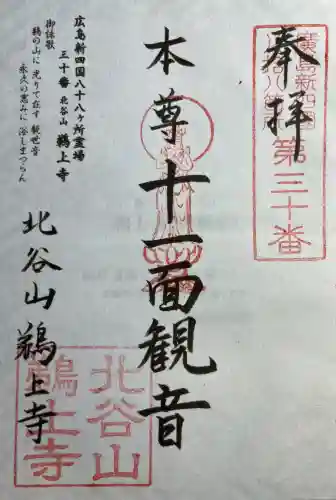 奉拝
廣島新四国
八十八ヶ所
第三十番
本尊十一面観音
北谷山 鵜上寺
北谷山
鵜上寺
広島新四国八十八ヶ所霊場
三十番 北谷山 鵜上寺
御詠歌
鵜の山に 光りて在す 観世音
永久の恵みに 浴しまつらん